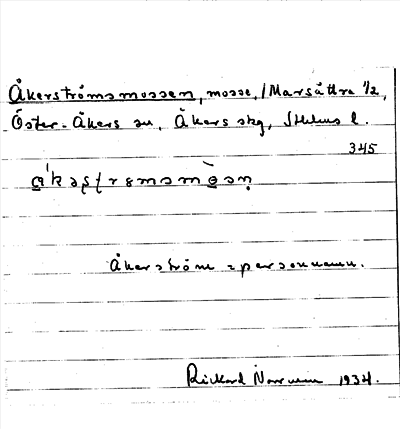 Åkerströmsmossen, mosse, / Marsättra 1/2,
Öster-Åkers sn, Åkers skg, Sthlms l.
345
Åkerström = personnamn.
Rickard 1934.